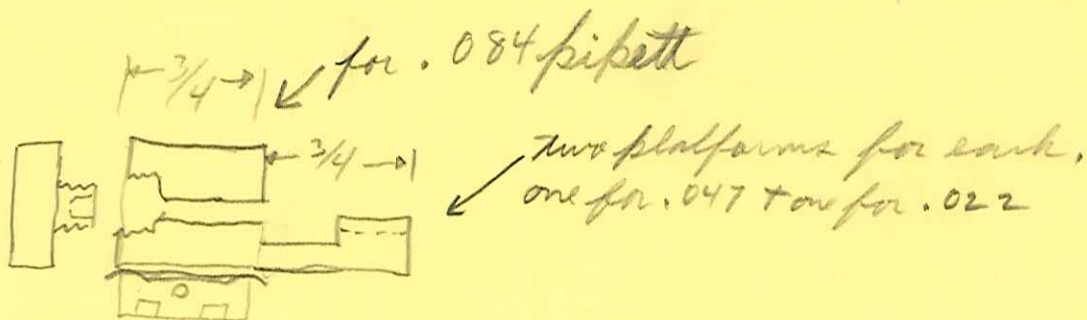 for .084 pipett
3/4
3/4
two platforms for each,
one for .047 + one for .022